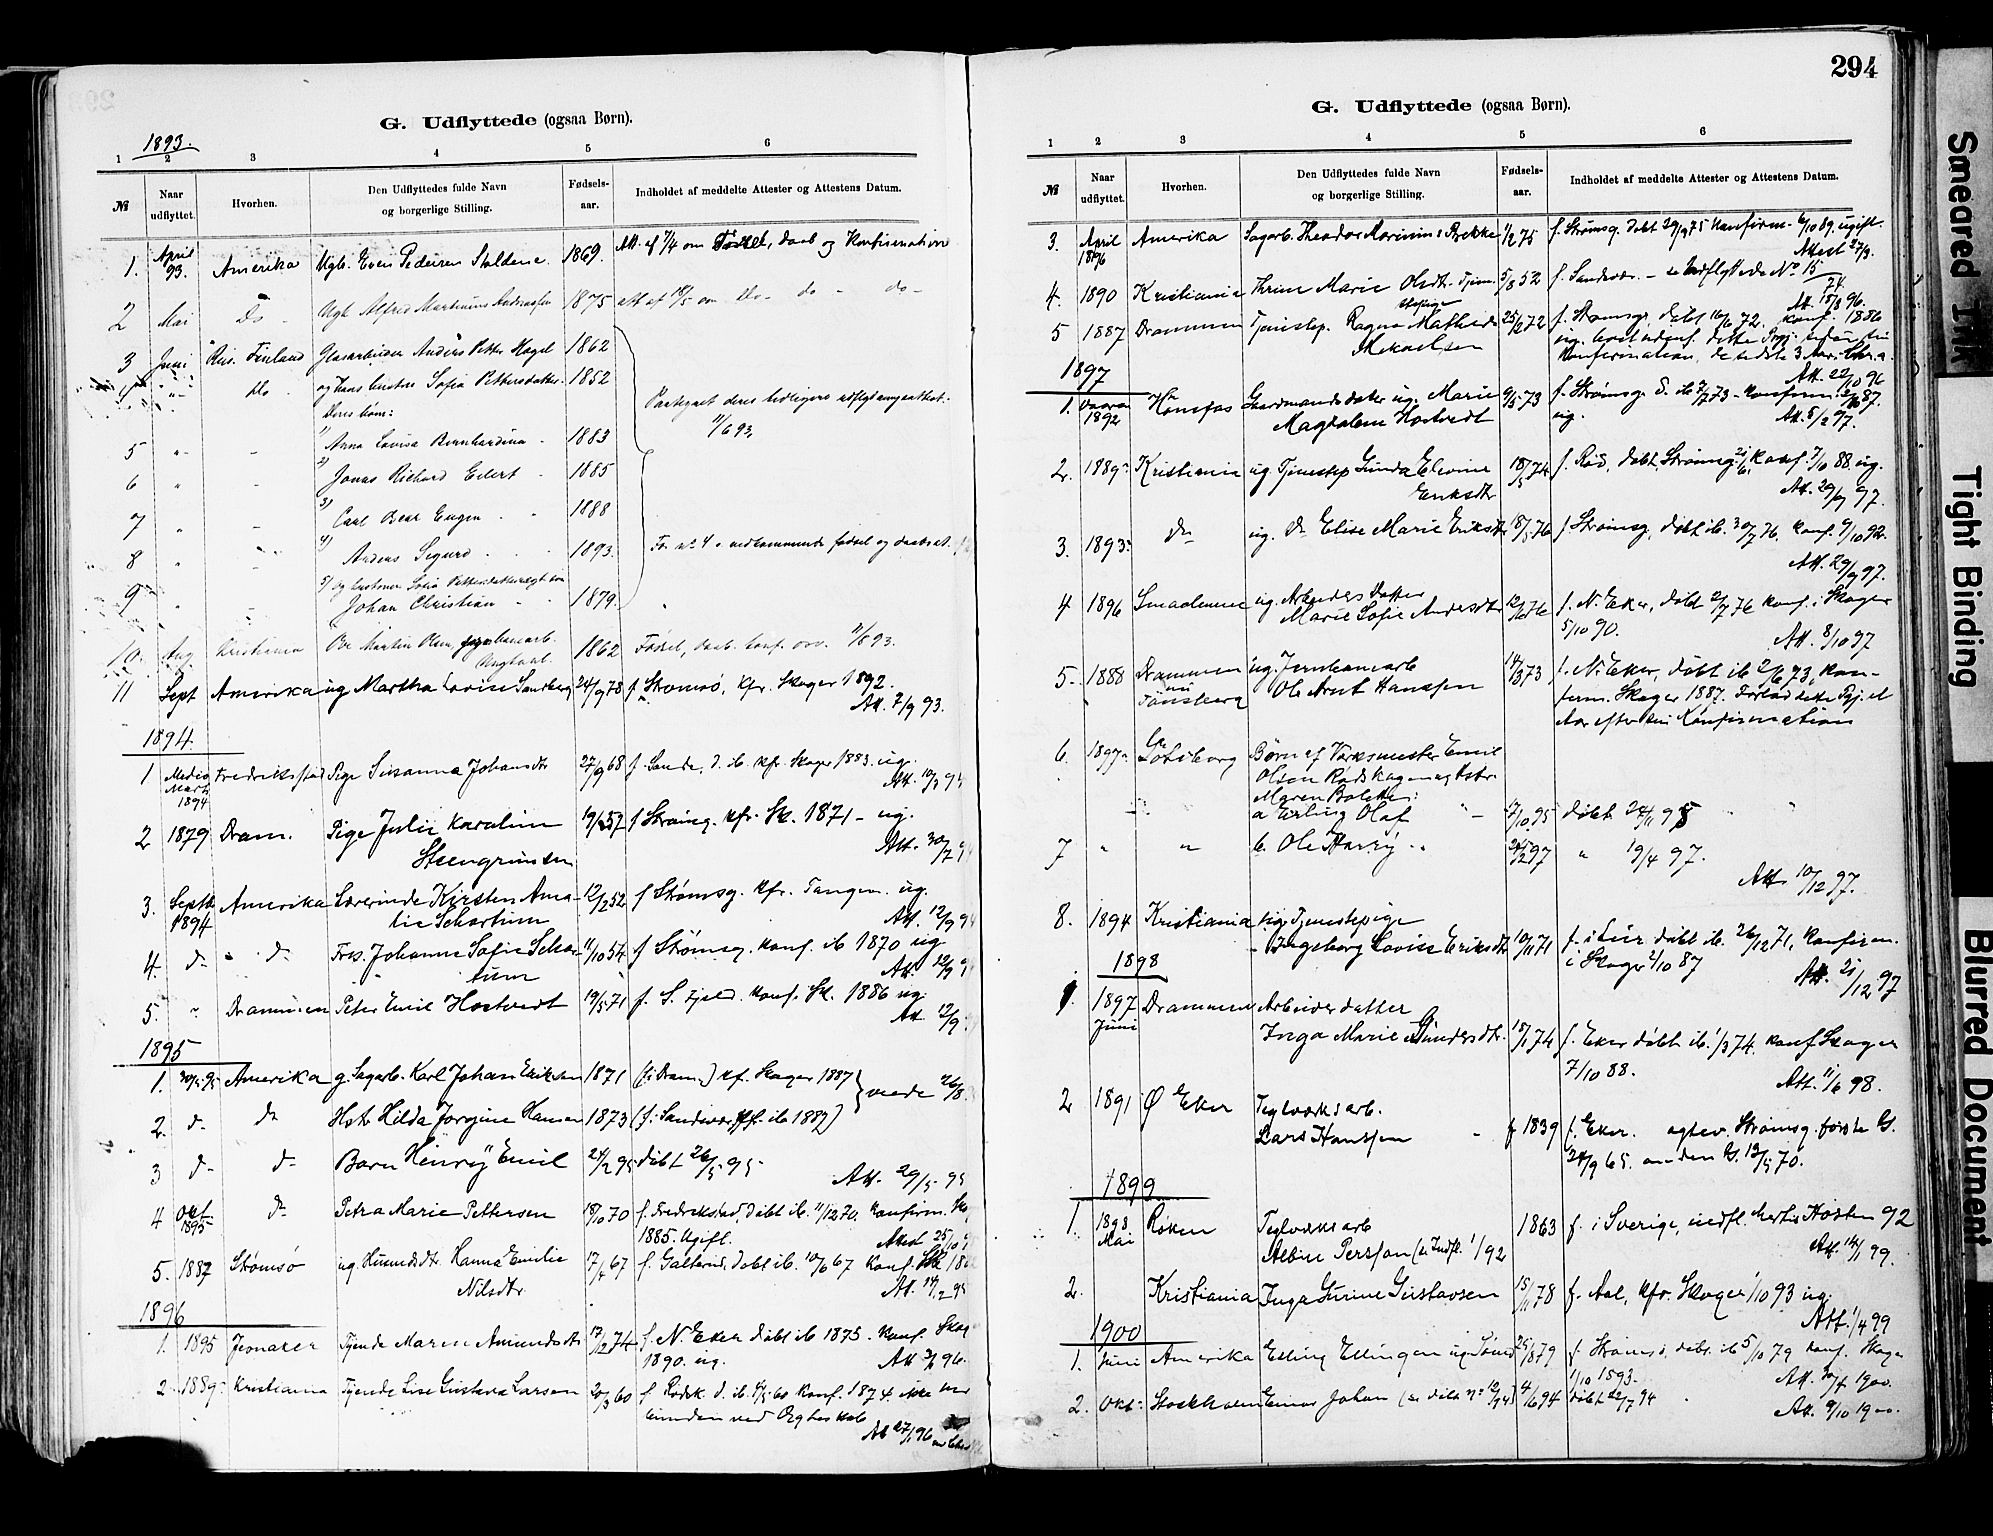 G. Udflyttede (ogsaa Børn).
1893.
1 2 3 4 5 6
№ Naar udflyttet. Hvorhen. Den Udflyttedes fulde Navn og borgerlige Stilling. Fødsels-aar. Indholdet af meddelte Attester og Attestens Datum.
1. April 93. Amerika Ugb. Even Pedersen 1869. Att. af 7/4 om Fødsel, daab og Konfirmation
2 Mai Do Ugk. Alfred Martinius Andreassen 1875 att af 18/5 om do - do - do -
3 Juni Rus. Finland Glasarbeider Anders Petter Hagel 1862
do og Hans hustru Sofia Pettersdatter 1852
Deres børn:
Paategnet deres tidligere udflytningsattest.
11/6 93.
5 1) Anna Lovisa Bernhardina 1883
6 2) Jonas Richard Edert 1885
7 3) Carl Bear Eugen 1888
8 4) Anders Sigurd 1893. For nr. 4 vedkommende fødsel og daabsat.
9 5) og hustruen Sofia Pettersdatters søn
Johan Christian 1879.
10. Aug Kristiania Ole Martin Olsen, 1862 Fødsel, daab, konf.
11 Sept Amerika ug Martha Lovise Sandberg 24/9 78 f. Strømsø, kfr. Skoger 1892.
Att. 7/9 93.
1894.
1 Medio Marts 1894 Fredriksstad Pige Susanna Johansdtr 27/9 68 f. Sande, d. ib. kfr. Skoger 1883. ug.
Att. 10/3 94
2 1879 Dram. Pige Julie Karoline Steengrimsen f Strømg. kfr. Sk. 1871 - ug.
Att. 30/7 94
3. Septb 1894 Amerika Lærerinde Kirsten Amalie Schartum 12/2 52 f Strømsg. kfr. Tangen. ug.
Att. 12/9 94
4. d- d- Frk. Johanne Sofie Schartum 11/10 54 f Strømsg. konf. ib 1870 ug
Att. 12/9 9
5. " Drammen Peter Emil Hostvedt 19/5 71 f. S. Fjeld. konf. Sk. 1886 ug.
Att. 12/9
1895
1. 30/5 95 Amerika g. Sagarb. Karl Johan Eriksen 1871 (f. Dram.) kf. Skoger 1887
2. d- d- Hst. Hilda Jorgine Hansen 1873 (f. Sandsvær kfr. ib 1887)
3 d- d- Barn Henry Emil 24/2 95 døbt 26/5 95
Att. 29/5 95
4 Okt 1895 d- Petra Marie Pettersen 18/10 70 f. Fredrikstad, døbt ib. 11/12 70. konfirm. Sko
1885. Ugift. Attest 25/10 9
5. 1887 Strømsø ug. Husmdsdtr Hanna Emilie Nilsdtr 17/4 67 f. Galterud, døbt ib. 10/6 67 konf. Sk 188
Att. 14/12 95
1896
1. 1895 Jevnaker Tjende Maren Amundsdtr 17/12 74 f. N. Eker døbt ib 1875. Konf. Skog
1890. ug. Att 3/ 96.
2. 1889 Kristiania Tjende Lise Gustava Larsen 20/3 60 f. Rødsk. d. ib. 4/5 60 konf. 1874. ikke
Att 27/1 96

294
G. Udflyttede (ogsaa Børn).
1 2 3 4 5 6
№ Naar udflyttet. Hvorhen. Den Udflyttedes fulde Navn og borgerlige Stilling. Fødsels-aar. Indholdet af meddelte Attester og Attestens Datum.
3. April 1896 Amerika Sagarb. Theodor Marinius Brekke 1/2 75 f. Strømsg. døbt 29/4 75 Konfirm. 6/10 89. ugift.
Attest 27/3.
4. 1890 Kristiania Thrine Marie Olsdtr. Tjen. 5/8 52 f. Sandsvær. - se Udflyttede No 15/74.
Att. 18/8 96.
5 1887 Drammen Tjenestep. Ragna Mathilde Mikaelsen 25/2 72 f. Strømsg. døbt 16/6 72. konf. 1886
ug. havt udenf. dette Prgj. siden sin
Konfirmation, de sidste 3 Aar i Chr.a.
Att. 22/10 96
1897
1. Vaaren 1892 Hønefos Gaardmandsdatter ug. Marie Magdalene Hostvedt 9/5 73 f. Strømsg. d. ib 7/7 73 - Konfirm. 87.
ug. Att. 5/2 97.
2. 1889 Kristiania ug. Tjenestep Gunda Elvine Eriksdtr 18/5 74 f. Røs, døbt Strømsg 21/6, konf. 7/10 88. ug.
Att. 29/9 97.
3. 1893 do ug. do Elise Marie Eriksdtr 18/5 76 f. Strømsg. døbt ib. 30/7 76, konf. 9/10 92.
Att. 29/9 97.
4 1896 Smaalenene ug. Arbeiders Datter
Marie Sofie Andersdtr 12/ 76 f. N. Eker, døbt 2/7 76 konf. i Skoger
5/10 90. Att. 8/10 97
5 1888 Drammen nu Tønsberg ug. Jernbanearb
Ole Arnt Hanssen 14/3 73 f. N. Eker, døbt ib 2/6 73, konfirm. Skoger 1887. Forlod dette Pgj. et
Aar efter sin Konfirmation
6. 1897 Göteborg Børn af Værksmester Emil
Olsen Rødskog og Hstr.
Maren Bolette:
a Erling Olaf 7/10 95 døbt 24/11 95
7 " " b. Ole Harry 24/2 97 " 19/4 97.
Att. 10/12 97.
8. 1894 Kristiania ug. Tjenestepige
Ingeborg Lovise Eriksdtr 10/11 71 f. i Lier døbt ib. 26/12 71, konfirm.
i Skoger 2/10 87 Att. 21/12 97
1898
1. 1897 Juni Drammen Arbeiderdatter
Inga Marie Gundersdtr. 18/1 74 f. Eker døbt ib. 1/3 74. konf Skoger
7/10 88. Att. 11/6 98.
2 1891 Ø Eker Teglværksarb.
Lars Hanssen f 1839 f. Eker. ægtev. Strømsg. første G.
24/9 65. anden G. 12/5 70.
1899
1. 1898 Mai Røken Teglværksarb
Albin Persson (se Indfl. 1/92 1863 f. i Sverige, indfl. hertil Høsten 92
Att. 14/1 99.
2. Kristiania Inga Gurine Gustavsen 15/11 78 f. Aal, kfr. Skoger 1/10 93 ug.
Att. 1/4 99
1900
1. Juni Amerika Elling Ellingsen ug Sømd 25/8 79 f. Strømsø, døbt ib 5/10 79 konf. Skoger
1/10 1893. Att. 30/ 1900.
2. Okt. Stockholm Einar Johan (se døbt No 12/94) 4/6 94 døbt 22/7 94
Att. 9/10 1900.
Smeared Ink
Tight Binding
Blurred Document